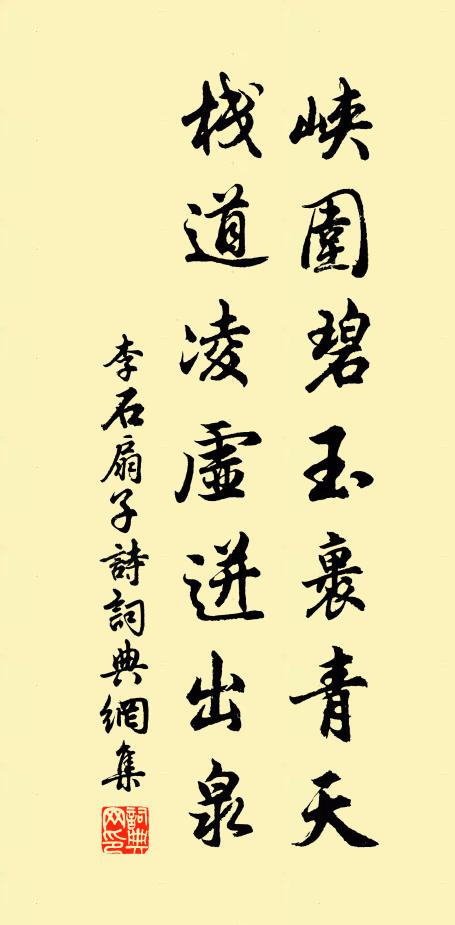 峽圍碧玉裹青天
棧道凌虛迸出泉
李石扇子詩詞典網集
詞典網印